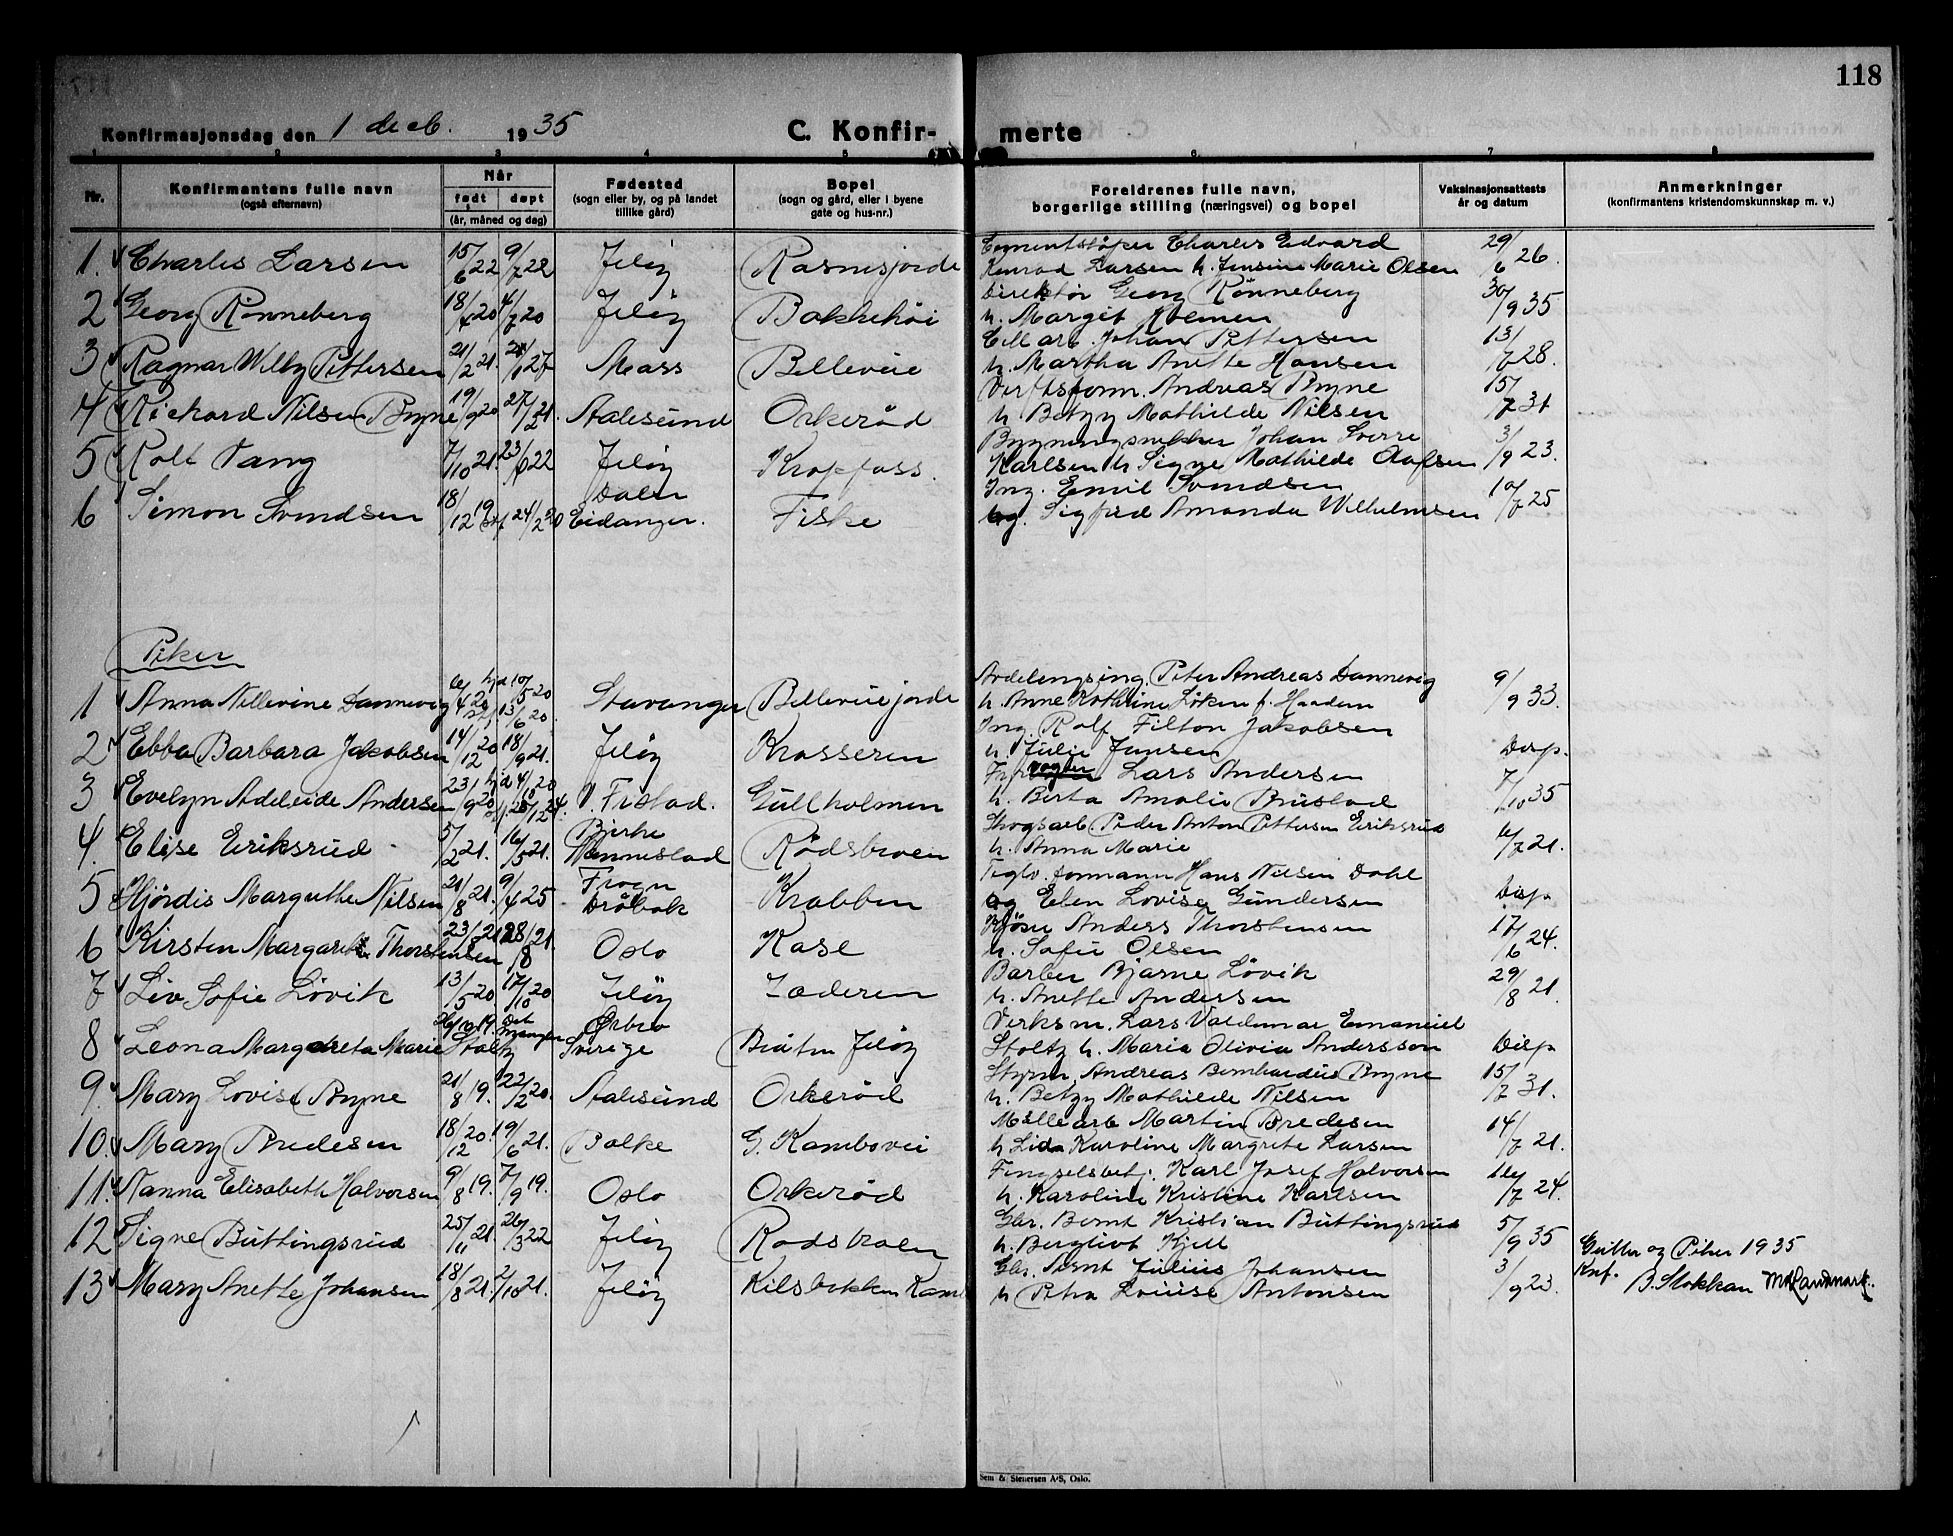 118
Konfirmasjonsdag den 1 decb. 1935
C. Konfir- merte
1 2 3 4 5 6 7 8
Nr.
Konfirmantens fulle navn
(også efternavn)
Når
født døpt
(år, måned og dag)
Fødested
(sogn eller by, og på landet
tillike gård)
Bopel
(sogn og gård, eller i byene
gate og hus-nr.)
Foreldrenes fulle navn,
borgerlige stilling (næringsvei) og bopel
Vaksinasjonsattests
år og datum
Anmerkninger
(konfirmantens kristendomskunnskap m. v.)
1. Charles Larsen 15/6 22 9/7 22 Jeløy Rasmusjorde Cementstøper Charles Edvard 29/6 26.
Konrad Larsen h. Jensine Marie Olsen
2 Georg Rønneberg 18/4 20 4/7 20 Jeløy Bakkehøi Direktør Georg Rønneberg 30/9 35
h. Margit Holmen
3 Ragnar Willy Pettersen 21/2 21. 21/1 27 Moss Belleveie Cell arb. Johan Pettersen 13/7 28.
h. Martha Anette Hansen
4 Rickard Nilsen Bryne 19/9 20 27/2 21. Aalesund Orkerød Verftsform. Andreas Bryne 15/7 31
h. Betzy Mathilde Nilsen
5 Rolf Vang 7/10 21. 23/6 22 Jeløy Kropfoss. Bygningsnekker Johan Sverre 3/9 23.
Karlsen h Signe Mathilde Olafsen
6 Simon Svendsen 18/12 19 24/2 20 Dalen Eidanger. Fiske Ing. Emil Svendsen 10/7 25
og. Sigfrid Amanda Wilhelmsen
Piker
1 Anna Nillevine Dannevig 6/4 20 hjd 10/5 20 Stavanger Belleveiejorde Avdelingsing. Peter Andreas Dannevig 9/9 33.
st. 13/6 20. h. Anne Kathrine Løken f. Haadem
2 Ebba Barbara Jakobsen 14/12 20 18/9 21. Jeløy Krosseren Ing. Rolf Filton Jakobsen Disp.
h. Julie Jensen
3 Evelyn Adeleide Andersen 23/9 20 hjd 4/10 20 Gullholmen Fyrvogter Lars Andersen 7/10 35
h. Berta Amalie Brustad
4. Elise Eriksrud 5/2 21. 16/5 21. Bjerke Nannestad Rødsbroen Skogsarb Peder Anton Pettersen Eriksrud 6/7 21.
h. Anna Marie
5 Hjørdis Margrethe Nilsen 21/8 21. 9/4 25 Frogn Drøbak Krabben Teglv. formann Hans Nilsen Dahl Disp
og Elen Lovise Gundersen
6 Kirsten Margarete Thorstensen 23/7 21 28/8 21 Oslo Kase Anders Thorstensen 17/6 24.
h. Sofie Olsen
7 Liv Sofie Løvik 13/5 20 17/10 20 Jeløy Jæderen Barber Bjarne Løvik 29/8 21.
h. Anette Andersen
8 Leona Margareta Marie Stoltz 26/10 19. Det mangler Ørbro Sverige Braten Jeløy Verksm. Lars Valdemar Emanuel Disp
Stoltz h. Maria Olivia Andersson
9. Mary Lovise Bryne 21/8 19. 22/2 20. Aalesund Orkerød Styrm. Andreas Bernhardus Bryne 15/7 31.
h. Betzy Mathilde Nilsen
10. Mary Bredesen 18/12 20. 19/6 21. Balke G. Kambovei Møllearb Martin Bredesen 14/7 21.
h Lida Karoline Margrete Larsen
11. Nanna Elisabeth Halvorsen 9/8 19. 7/9 19. Oslo Orkerød Fengselsbet: Karl Josef Halvorsen 16/7 24.
h. Karoline Kristine Karlsen
12 Signe Buttingsrud 25/11 21. 26/3 22 Jeløy Rødsbroen Gbr. Bernt Kristian Buttingsrud 5/9 35
h. Bergliot Kjell
13 Mary Anette Johansen 18/8 21. 2/10 21. Jeløy Kilsbakken Kamb Gbr. Bernt Julius Johansen 3/9 23.
h Petra Louise Antonsen
Gutter og Piker 1935
Knf. B. Stokkan M Landmark.
Sem & Stenersen A/S, Oslo.